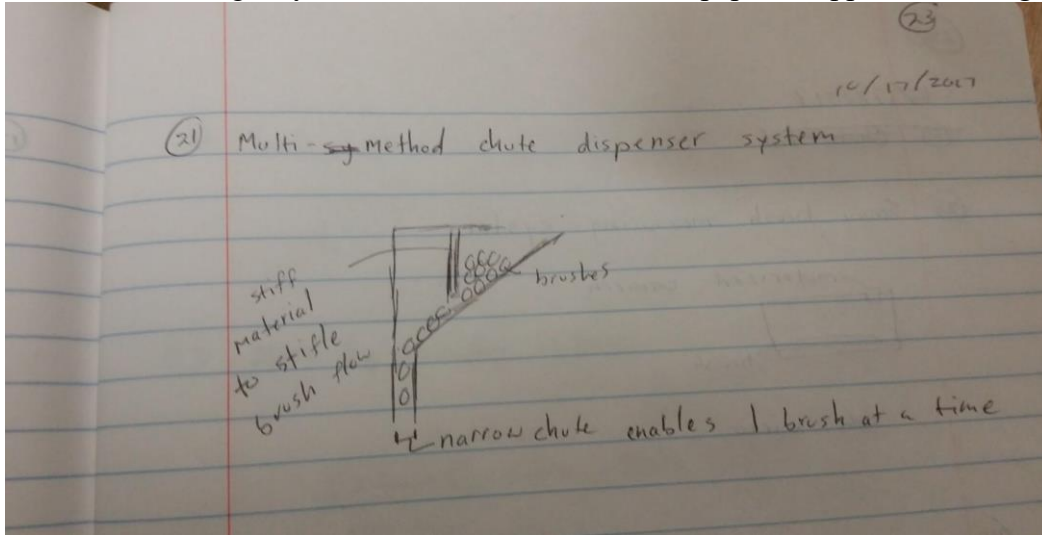 23
10/17/2017
21 Multi-sy Method chute dispenser system
stiff
material
to stifle
brush flow
brushes
narrow chute enables 1 brush at a time